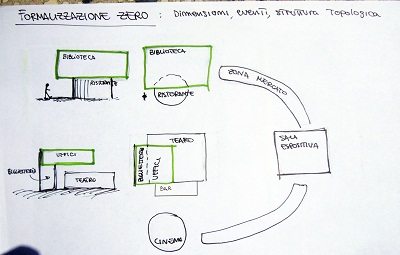 FORMALIZZAZIONE ZERO : DIMENSIONI, EVENTI, STRUTTURA TOPOLOGICA
BIBLIOTECA
RISTORANTE
BIBLIOTECA
RISTORANTE
ZONA MERCATO
UFFICI
BIGLIETTERIA
TEATRO
TEATRO
BIGLIETTERIA
UFFICI
BAR
SALA
ESPOSITIVA
CINEMA